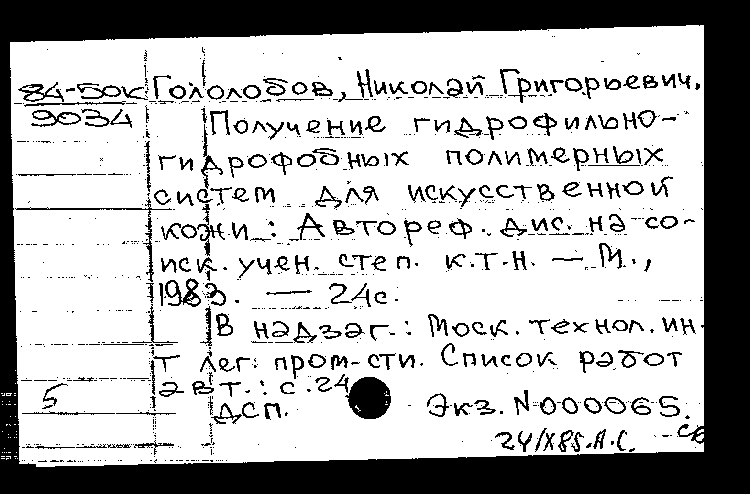 84-50к Гололобов, Николай Григорьевич.
9034 Получение гидрофильно-
гидрофобных полимерных
систем для искусственной
кожи : Автореф. дис. на со-
иск. учен. степ. к.т.н. — М.,
1983. — 24с.
В надзаг.: Моск. технол. ин-
т лег. пром-сти. Список работ
авт.: с. 24
5 ДСП. Экз. N000065.
24/X85.А.С.